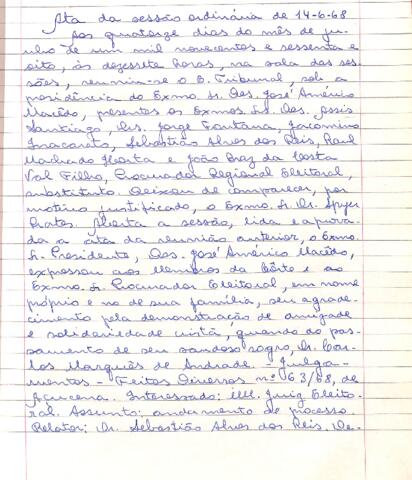 Ata da sessão ordinária de 14-6-68
Aos quatorze dias do mês de ju-
nho de um mil novecentos e sessenta e
oito, às dezessete horas, na sala das ses-
sões, reuniu-se o E. Tribunal, sob a
presidência do Exmo. Sr. Des. José Américo
Macêdo, presentes os Exmos. Srs. Des. Assis
Santiago, Drs. Jorge Fontana, Jacomino
Inacarato, Sebastião Alves dos Reis, Raul
Machado Horta e João Braz da Costa
Val Filho, Procurador Regional Eleitoral,
substituto. Deixou de comparecer, por
motivo justificado, o Exmo. Sr. Dr.
Prates. Aberta a sessão, lida e aprova-
da a ata da reunião anterior, o Exmo.
Sr. Presidente, Des. José Américo Macêdo,
expressou aos Membros da Côrte e ao
Exmo. Sr. Procurador Eleitoral, em nome
próprio e no de sua família, seu agrade-
cimento pela demonstração de amizade
e solidariedade cristã, quando do pas-
samento de seu saudoso sogro, Dr. Car-
los Marques de Andrade. - Julga-
mentos - Feitos Diversos nº 63/68, de
Açucena. Interessado: MM. Juiz Eleito-
ral. Assunto: andamento de processo.
Relator: Dr. Sebastião Alves dos Reis. De-